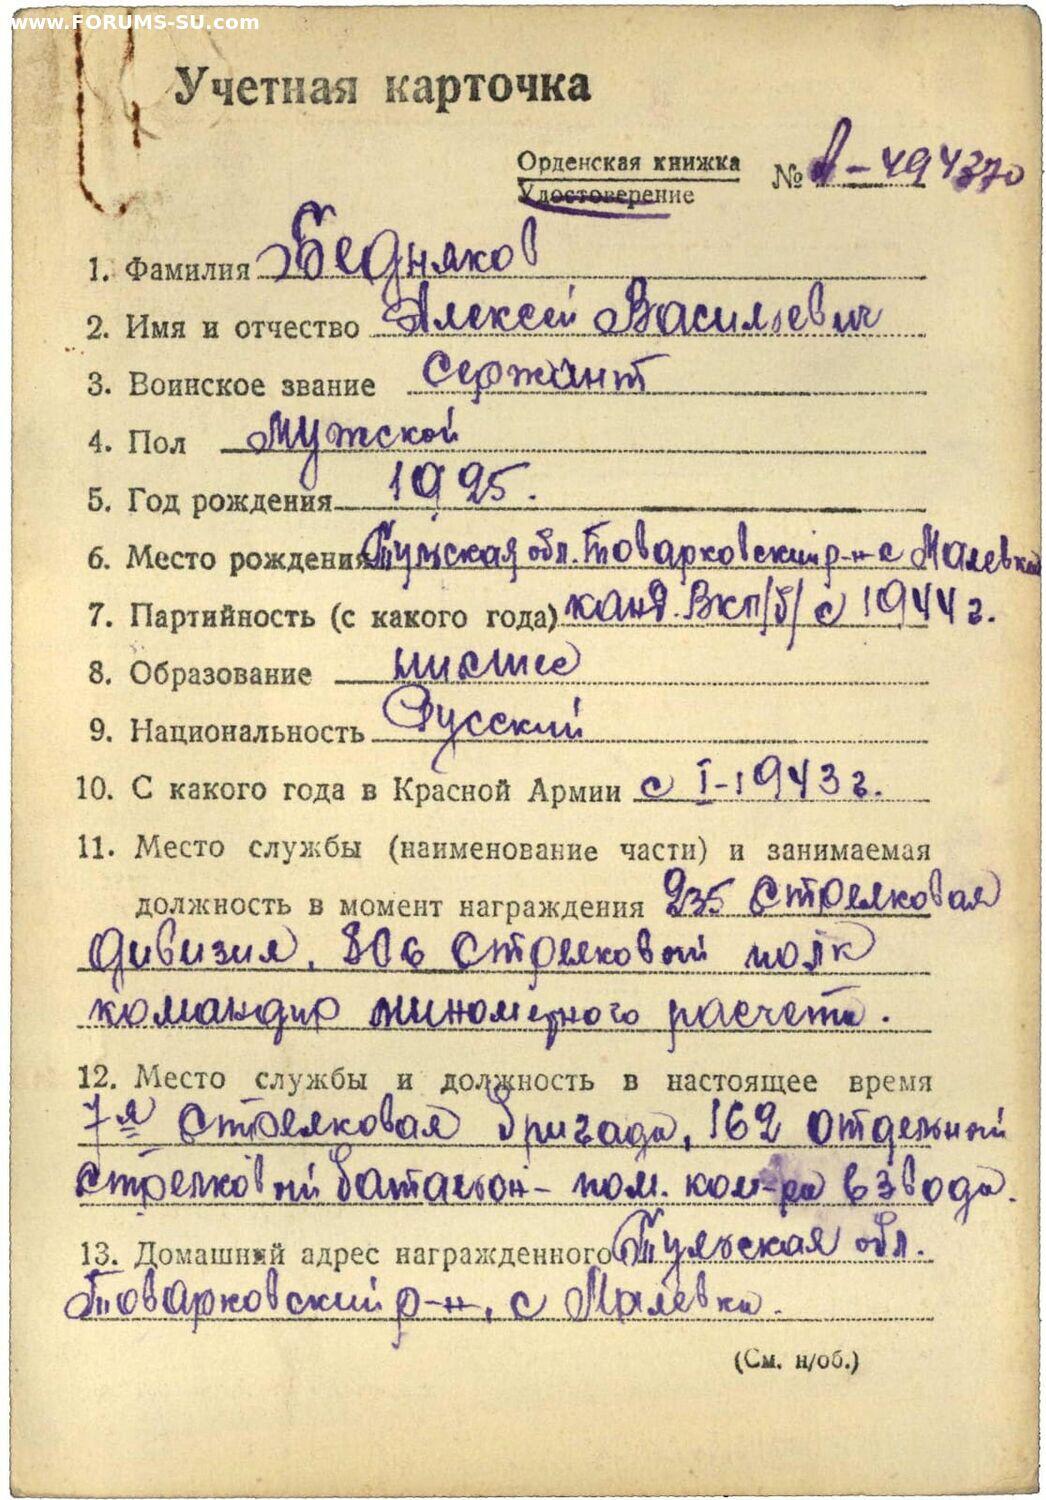 www.FORUMS-SU.com
Учетная карточка
Орденская книжка № В-494370
Удостоверение
1. Фамилия Бедняков
2. Имя и отчество Алексей Васильевич
3. Воинское звание сержант
4. Пол мужской
5. Год рождения 1925.
6. Место рождения Тульская обл. Товарковский р-н с Малевка
7. Партийность (с какого года) канд. Вкп/б/ с 1944 г.
8. Образование низшее
9. Национальность Русский
10. С какого года в Красной Армии с I-1943 г.
11. Место службы (наименование части) и занимаемая
должность в момент награждения 235 стрелковая
дивизия, 806 стрелковый полк
командир минометного расчета.
12. Место службы и должность в настоящее время
7я стрелковая бригада, 162 отдельный
стрелковый батальон - пом. ком-ра взвода.
13. Домашний адрес награжденного Тульская обл.
Товарковский р-н, с Малевка.
(См. н/об.)